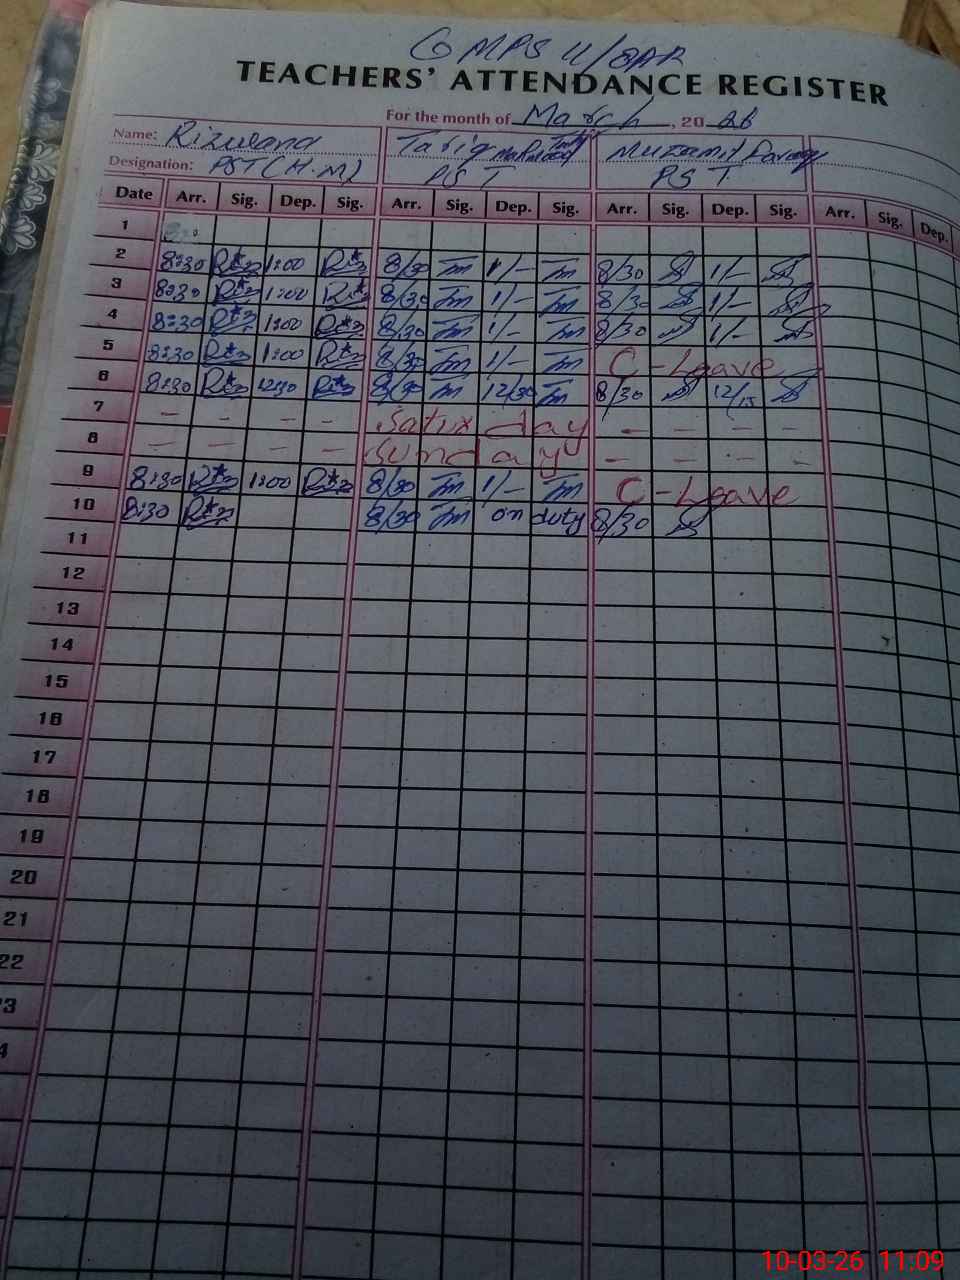 GMPS U/
TEACHERS' ATTENDANCE REGISTER
For the month of March, 2026
Name: Rizwana Tariq Mahmood Muzamil
Designation: PST (H.M) PST PST
Date Arr. Sig. Dep. Sig. Arr. Sig. Dep. Sig. Arr. Sig. Dep. Sig. Arr. Sig. Dep.
1
2 8:30 1:00 8/30 Tm 1/- Tm 8/30 1/-
3 8:30 1:00 8/30 Tm 1/- Tm 8/30 1/-
4 8:30 1:00 8/30 Tm 1/- Tm 8/30 1/-
5 8:30 1:00 8/30 Tm 1/- Tm C-Leave
6 8:30 12:30 8/30 Tm 12/30 Tm 8/30 12/15
7 - - - - Saturday - - - -
8 - - - - Sunday - - - -
9 8:30 1:00 8/30 Tm 1/- Tm C-Leave
10 8:30 8/30 Tm on duty 8/30
11
12
13
14
15
16
17
18
19
20
21
22
3
4
10-03-26 11:09